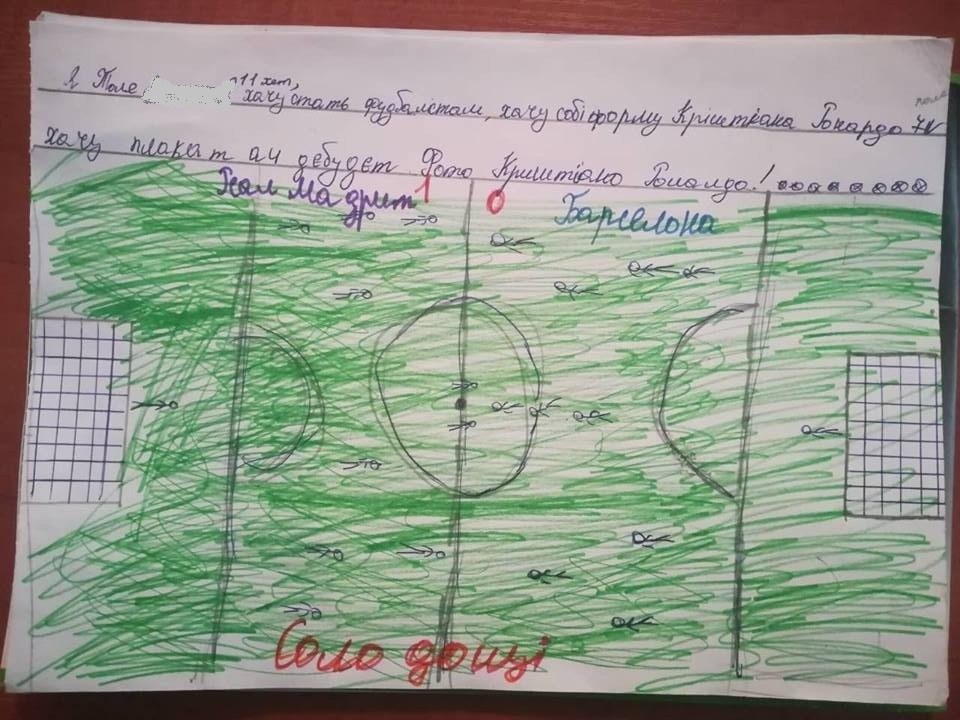 Я Толе 11 хет,
хачу стать фудбалістам, хачу собі форму Крішткана Гонардо 7N
хачу плакат ач дебудет Фото Криштіано Роналдо!
Реал Мадрит 1 0 Барселона
Соло донці